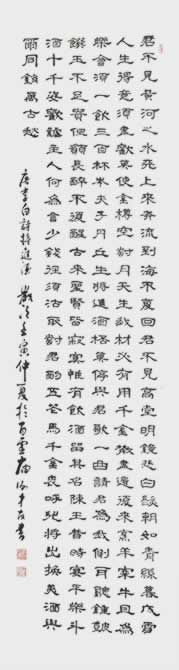 君不見黃河之水天上來奔流到海不復回君不見高堂明鏡悲白髮朝如青絲暮成雪
人生得意須盡歡莫使金樽空對月天生我材必有用千金散盡還復來烹羊宰牛且為
樂會須一飲三百杯岑夫子丹丘生將進酒杯莫停與君歌一曲請君為我側耳聽鐘鼓
饌玉不足貴但願長醉不願醒古來聖賢皆寂寞惟有飲者留其名陳王昔時宴平樂斗
酒十千恣歡謔主人何為言少錢徑須沽取對君酌五花馬千金裘呼兒將出換美酒與
爾同銷萬古愁
唐李白詩將進酒 歲次壬寅仲夏於百靈廟 書